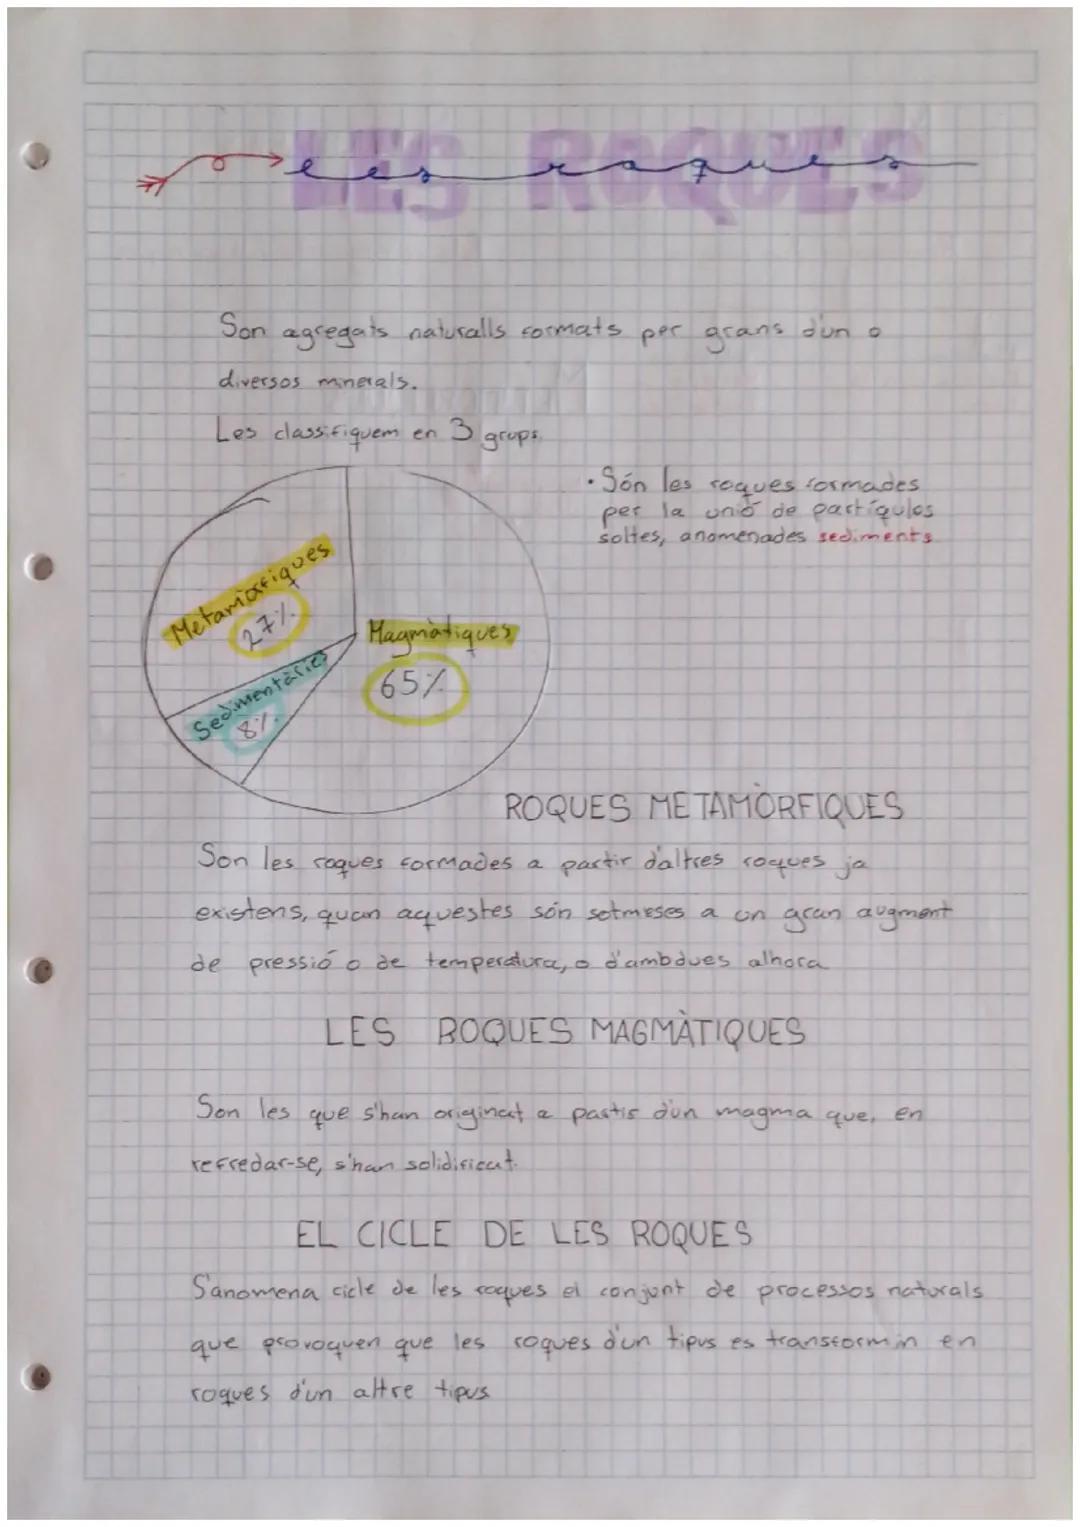 LES ROQUES
les roques
Son agregats naturalls formats per grans d'un o
diversos minerals.
Les classifiquem en 3 grups.
Metamòrfiques
27%
Sedimentàries
8%
Magmàtiques
65%
• Són les roques formades
per la unió de partíqules
soltes, anomenades sediments
ROQUES METAMÒRFIQUES
Son les roques formades a partir d'altres roques ja
existens, quan aquestes són sotmeses a un gran augment
de pressió o de temperatura, o d'ambdues alhora
LES ROQUES MAGMÀTIQUES
Son les que s'han originat a partir d'un magma que, en
refredar-se, s'han solidificat.
EL CICLE DE LES ROQUES
S'anomena cicle de les roques el conjunt de processos naturals
que provoquen que les roques d'un tipus es transformin en
roques d'un altre tipus